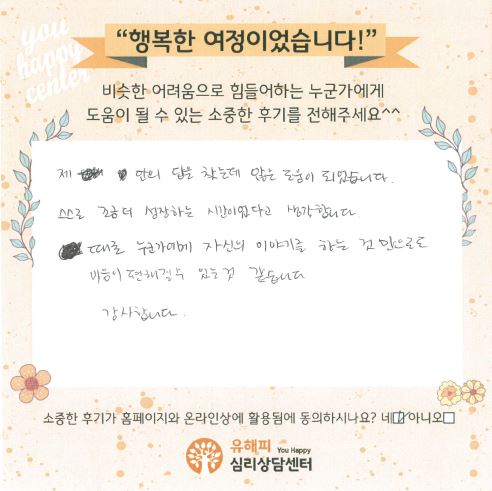 you
happy
center
“행복한 여정이었습니다!”
비슷한 어려움으로 힘들어하는 누군가에게
도움이 될 수 있는 소중한 후기를 전해주세요^^
제 만의 답을 찾는데 많은 도움이 되었습니다.
스스로 조금 더 성장하는 시간이었다고 생각합니다
때로 누군가에게 자신의 이야기를 하는 것 만으로도
마음이 편해질수 있는것 같습니다
감사합니다.
소중한 후기가 홈페이지와 온라인상에 활용됨에 동의하시나요? 네☑아니오☐
유해피 You Happy
심리상담센터